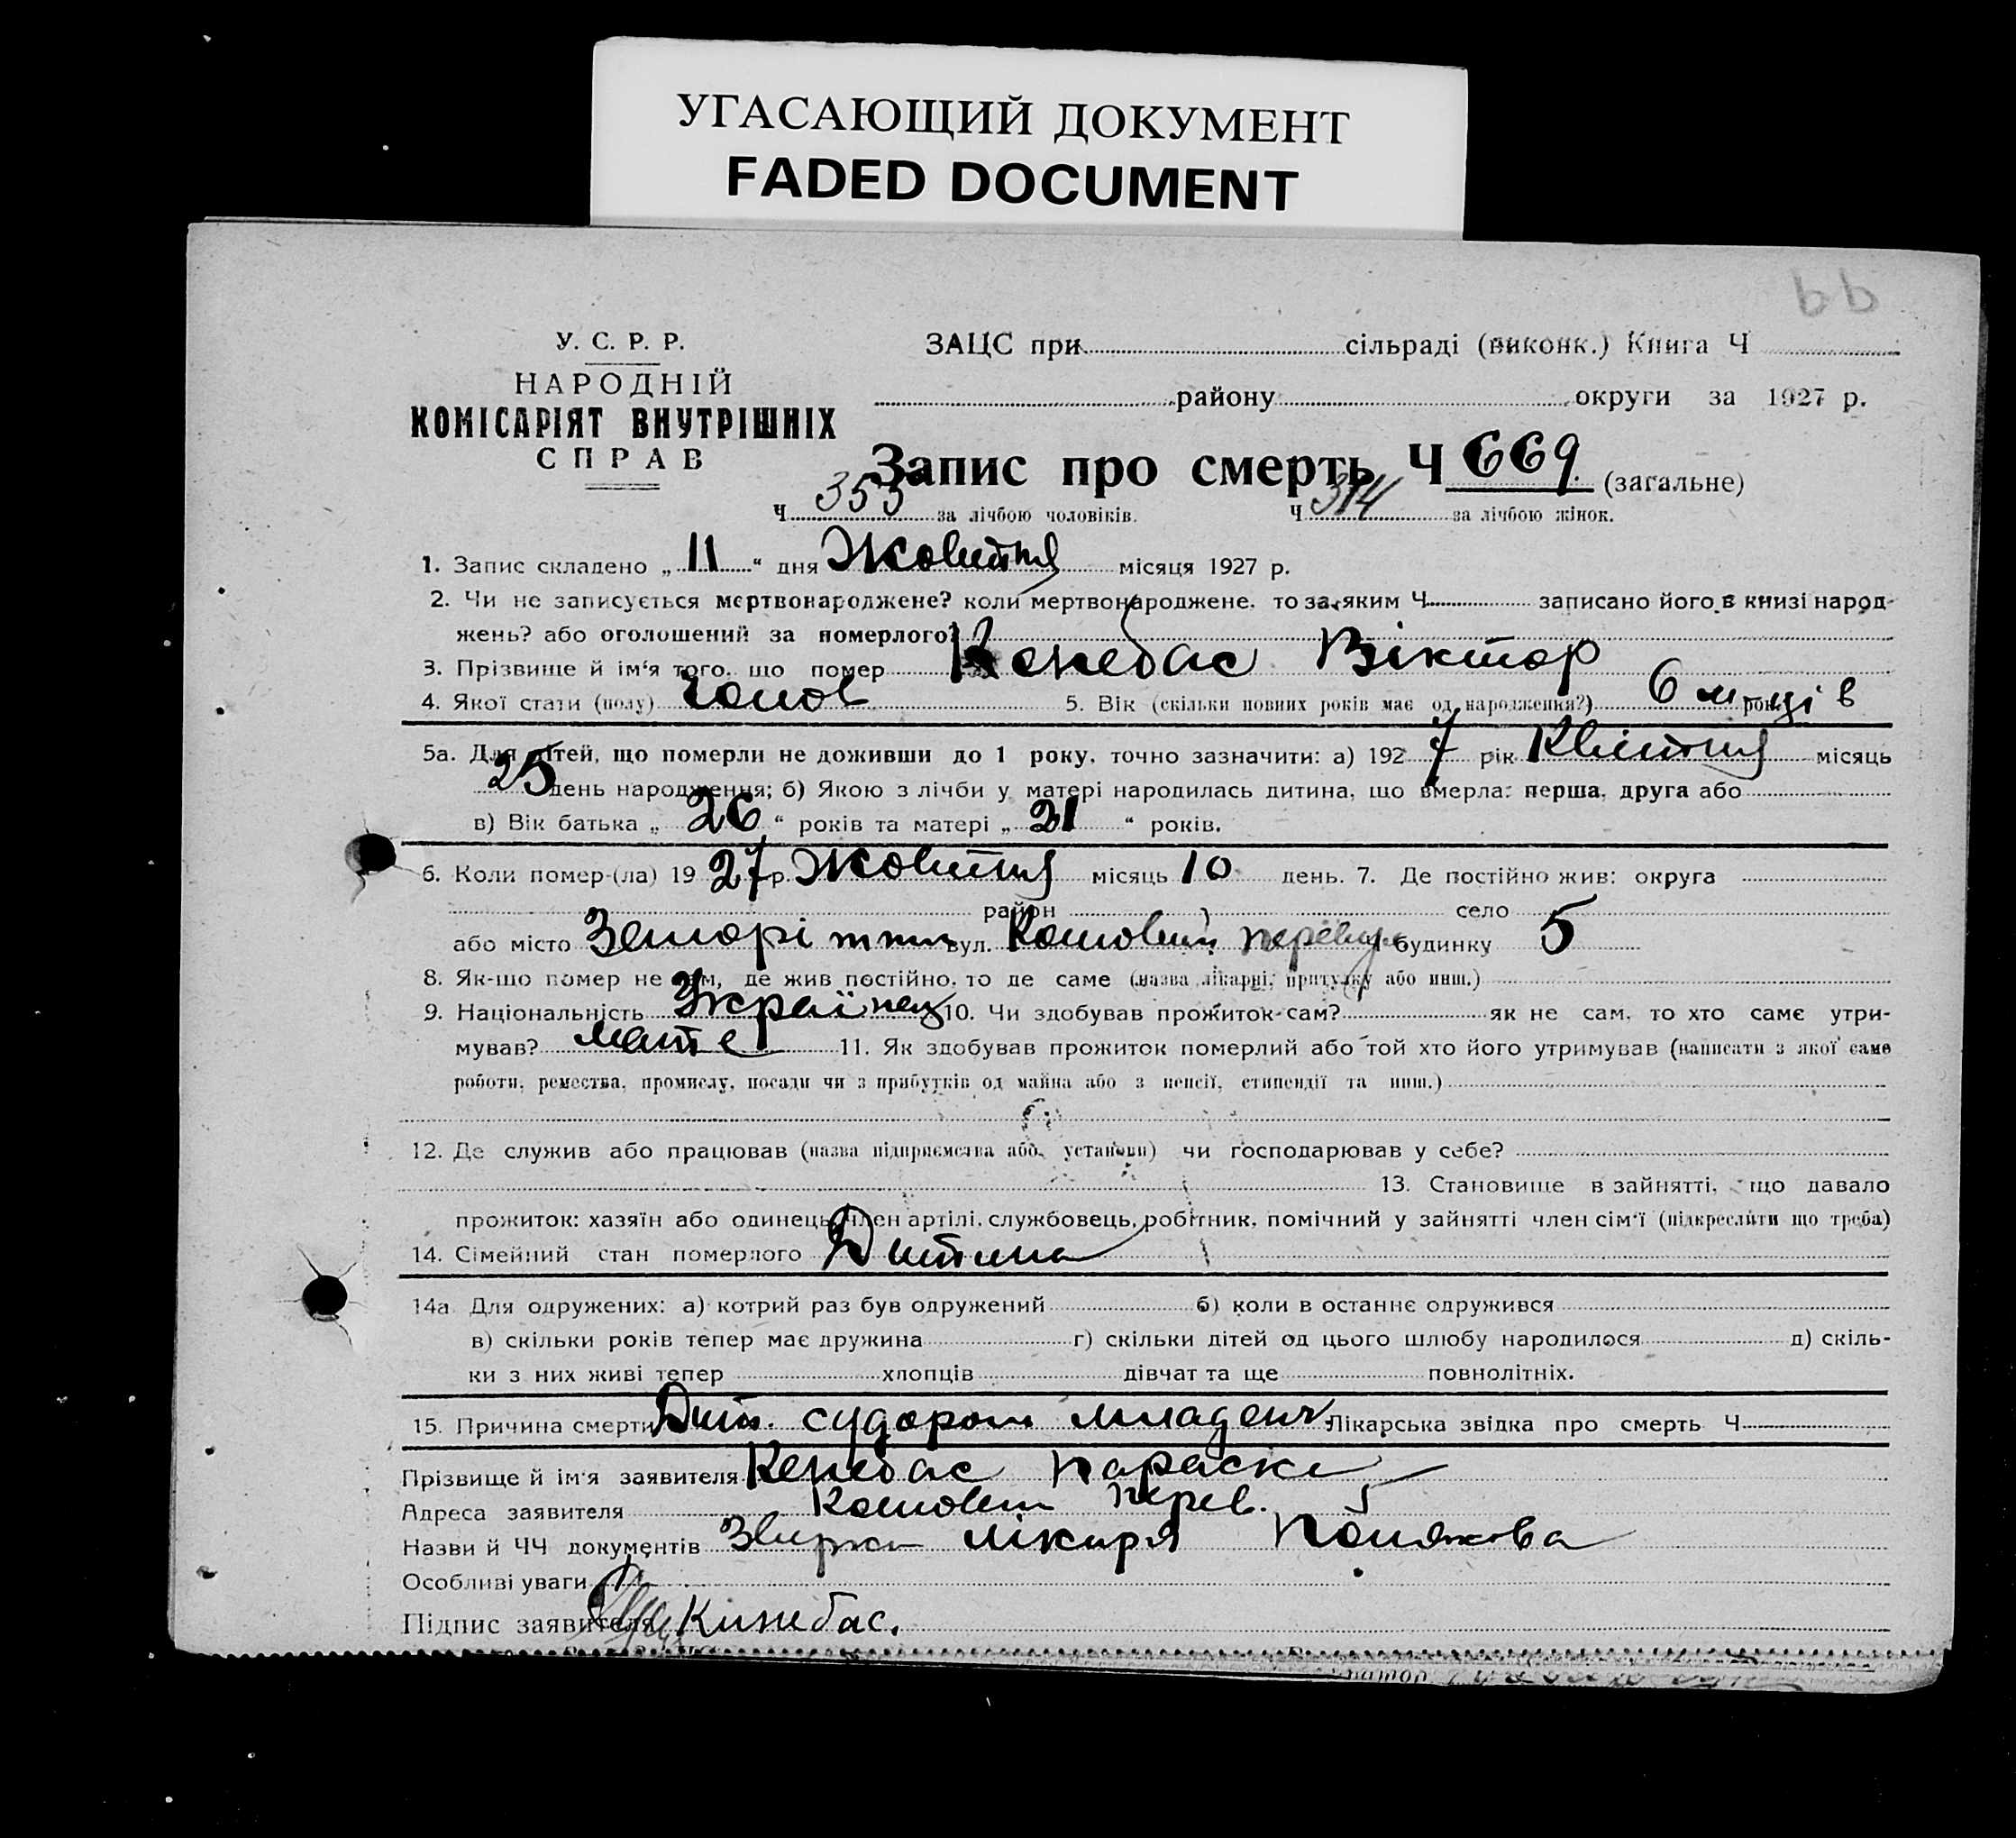 УГАСАЮЩИЙ ДОКУМЕНТ
FADED DOCUMENT
У. С. Р. Р.
НАРОДНІЙ
КОМІСАРІЯТ ВНУТРІШНІХ
СПРАВ
ЗАЦС при сільраді (виконк.) Книга Ч
району округи за 1927 р.
Запис про смерть Ч 669 (загальне)
Ч 355 за лічбою чоловіків. Ч 314 за лічбою жінок.
1. Запис складено „ 11 “ дня Жовтня місяця 1927 р.
2. Чи не записується мертвонароджене? коли мертвонароджене, то за яким Ч записано його в книзі народ-
жень? або оголошений за померлого?
3. Прізвище й ім'я того, що помер Кенебас Віктор
4. Якої стати (полу) чолов 5. Вік (скільки повних років має од народження?) 6 м-ців
5а. Для дітей, що померли не доживши до 1 року, точно зазначити: а) 1927 рік Квітня місяць
25 день народження; б) Якою з лічби у матері народилась дитина, що вмерла: перша, друга або
в) Вік батька „ 26 “ років та матері „ 21 “ років.
6. Коли помер-(ла) 1927 р. Жовтня місяць 10 день. 7. Де постійно жив: округа
район село
або місто вул. перевул будинку 5
8. Як-що помер не там, де жив постійно, то де саме (назва лікарні, притулку або инш.)
9. Національність Українец 10. Чи здобував прожиток сам? як не сам, то хто саме утри-
мував? 11. Як здобував прожиток померлий або той хто його утримував (написати з якої саме
роботи, ремества, промислу, посади чи з прибутків од майна або з пенсії, стипендії та инш.)
12. Де служив або працював (назва підприємства або установи) чи господарював у себе?
13. Становище в зайнятті, що давало
прожиток: хазяїн або одинець, член артілі, службовець, робітник, помічний у зайнятті член сім'ї (підкреслити що треба)
14. Сімейний стан померлого Дитина
14а Для одружених: а) котрий раз був одружений б) коли в останнє одружився
в) скільки років тепер має дружина г) скільки дітей од цього шлюбу народилося д) скіль-
ки з них живі тепер хлопців дівчат та ще повнолітніх.
15. Причина смерти Дит. судороги младенч. Лікарська звідка про смерть Ч
Прізвище й ім'я заявителя Кенебас Параска
Адреса заявителя перев. 5
Назви й ЧЧ документів лікаря Полякова
Особливі уваги
Підпис заявителя Кинебас.